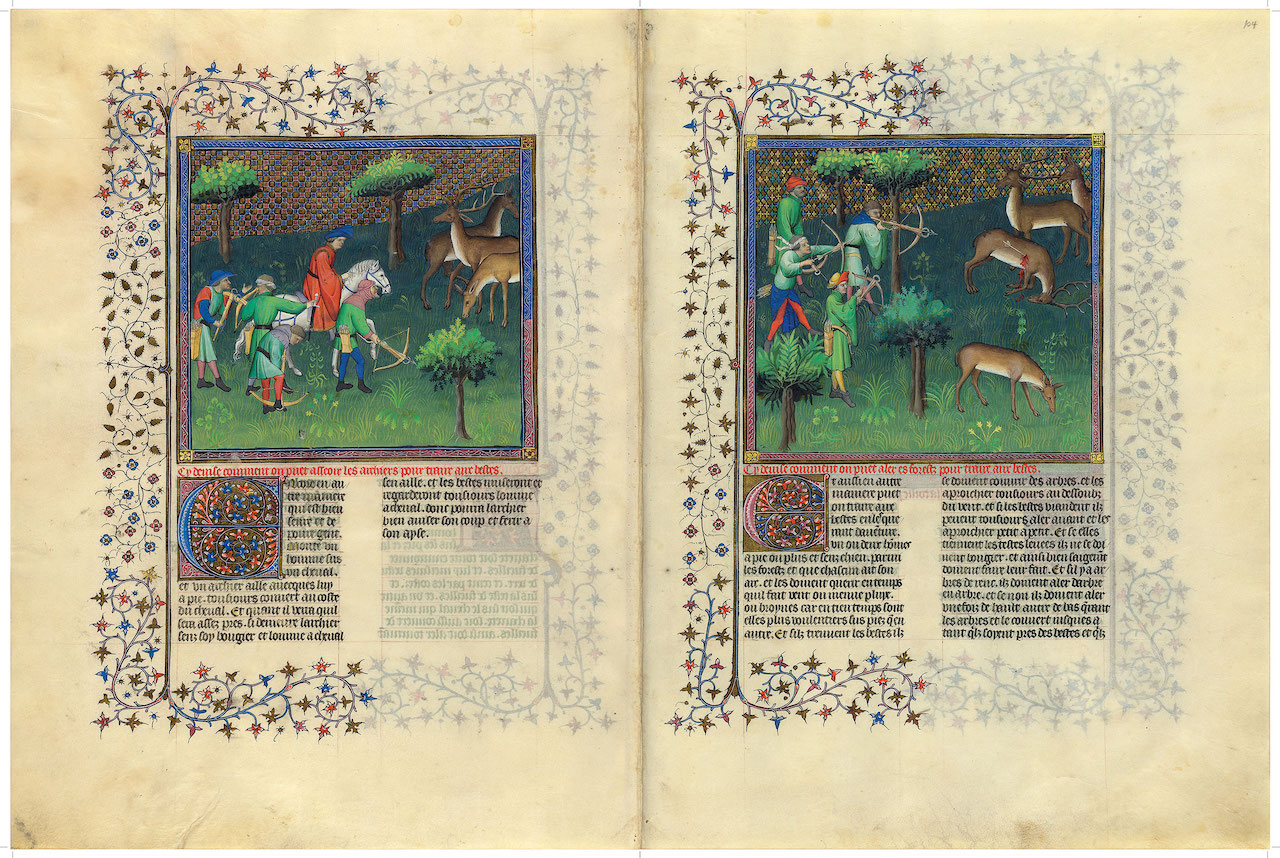 104
Cy deuise comment on puet asseoir les archiers pour traire aux bestes.
Ncore en au
tre maniere
qui est bien
seure et de
poure gent.
Monte vn
homme sus
vn cheual.
et vn archier aille auecques luy
a pie. tousiours couuert au coste
du cheual. Et quant il verra quil
sera assez pres. si demeure larchier
sens soy bougier et lomme a cheual
sen aille. et les bestes museront et
regarderont tousiours lomme
a cheual. dont pourra larchier
bien auiser son coup et ferir a
son ayse.
Cy deuise comment on puet aler es forestz pour traire aux bestes.
t aussi en autre
maniere puet
on traire aux
bestes
vn ou deux homes
a pie ou plus et senz chien. parmi
les forestz et que chascun ait son
arc. et les doiuent querir en temps
quil fait vent ou menue pluye.
ou broynes car en tieu temps sont
elles plus voulentiers sus piez quen
autre. Et silz treuuent les bestes ilz
se doiuent couurir des arbres. et les
aprouchier tousiours au dessoubz
du vent. et si les bestes viandent ilz
peuent tousiours aler auant et les
aprouchier petit a petit. Et se elles
tiennent les testes leuees ilz ne se doi
uent bougier. et aussi bien saigement
doiuent faire leur fait. Et sil y a ar
bres de ilz doiuent aler darbre
en arbre. et se non ilz doiuent aler
vne fois de hault autre de bas quant
les arbres et le couuert iusques a
tant qlz soyent pres des bestes et qlz